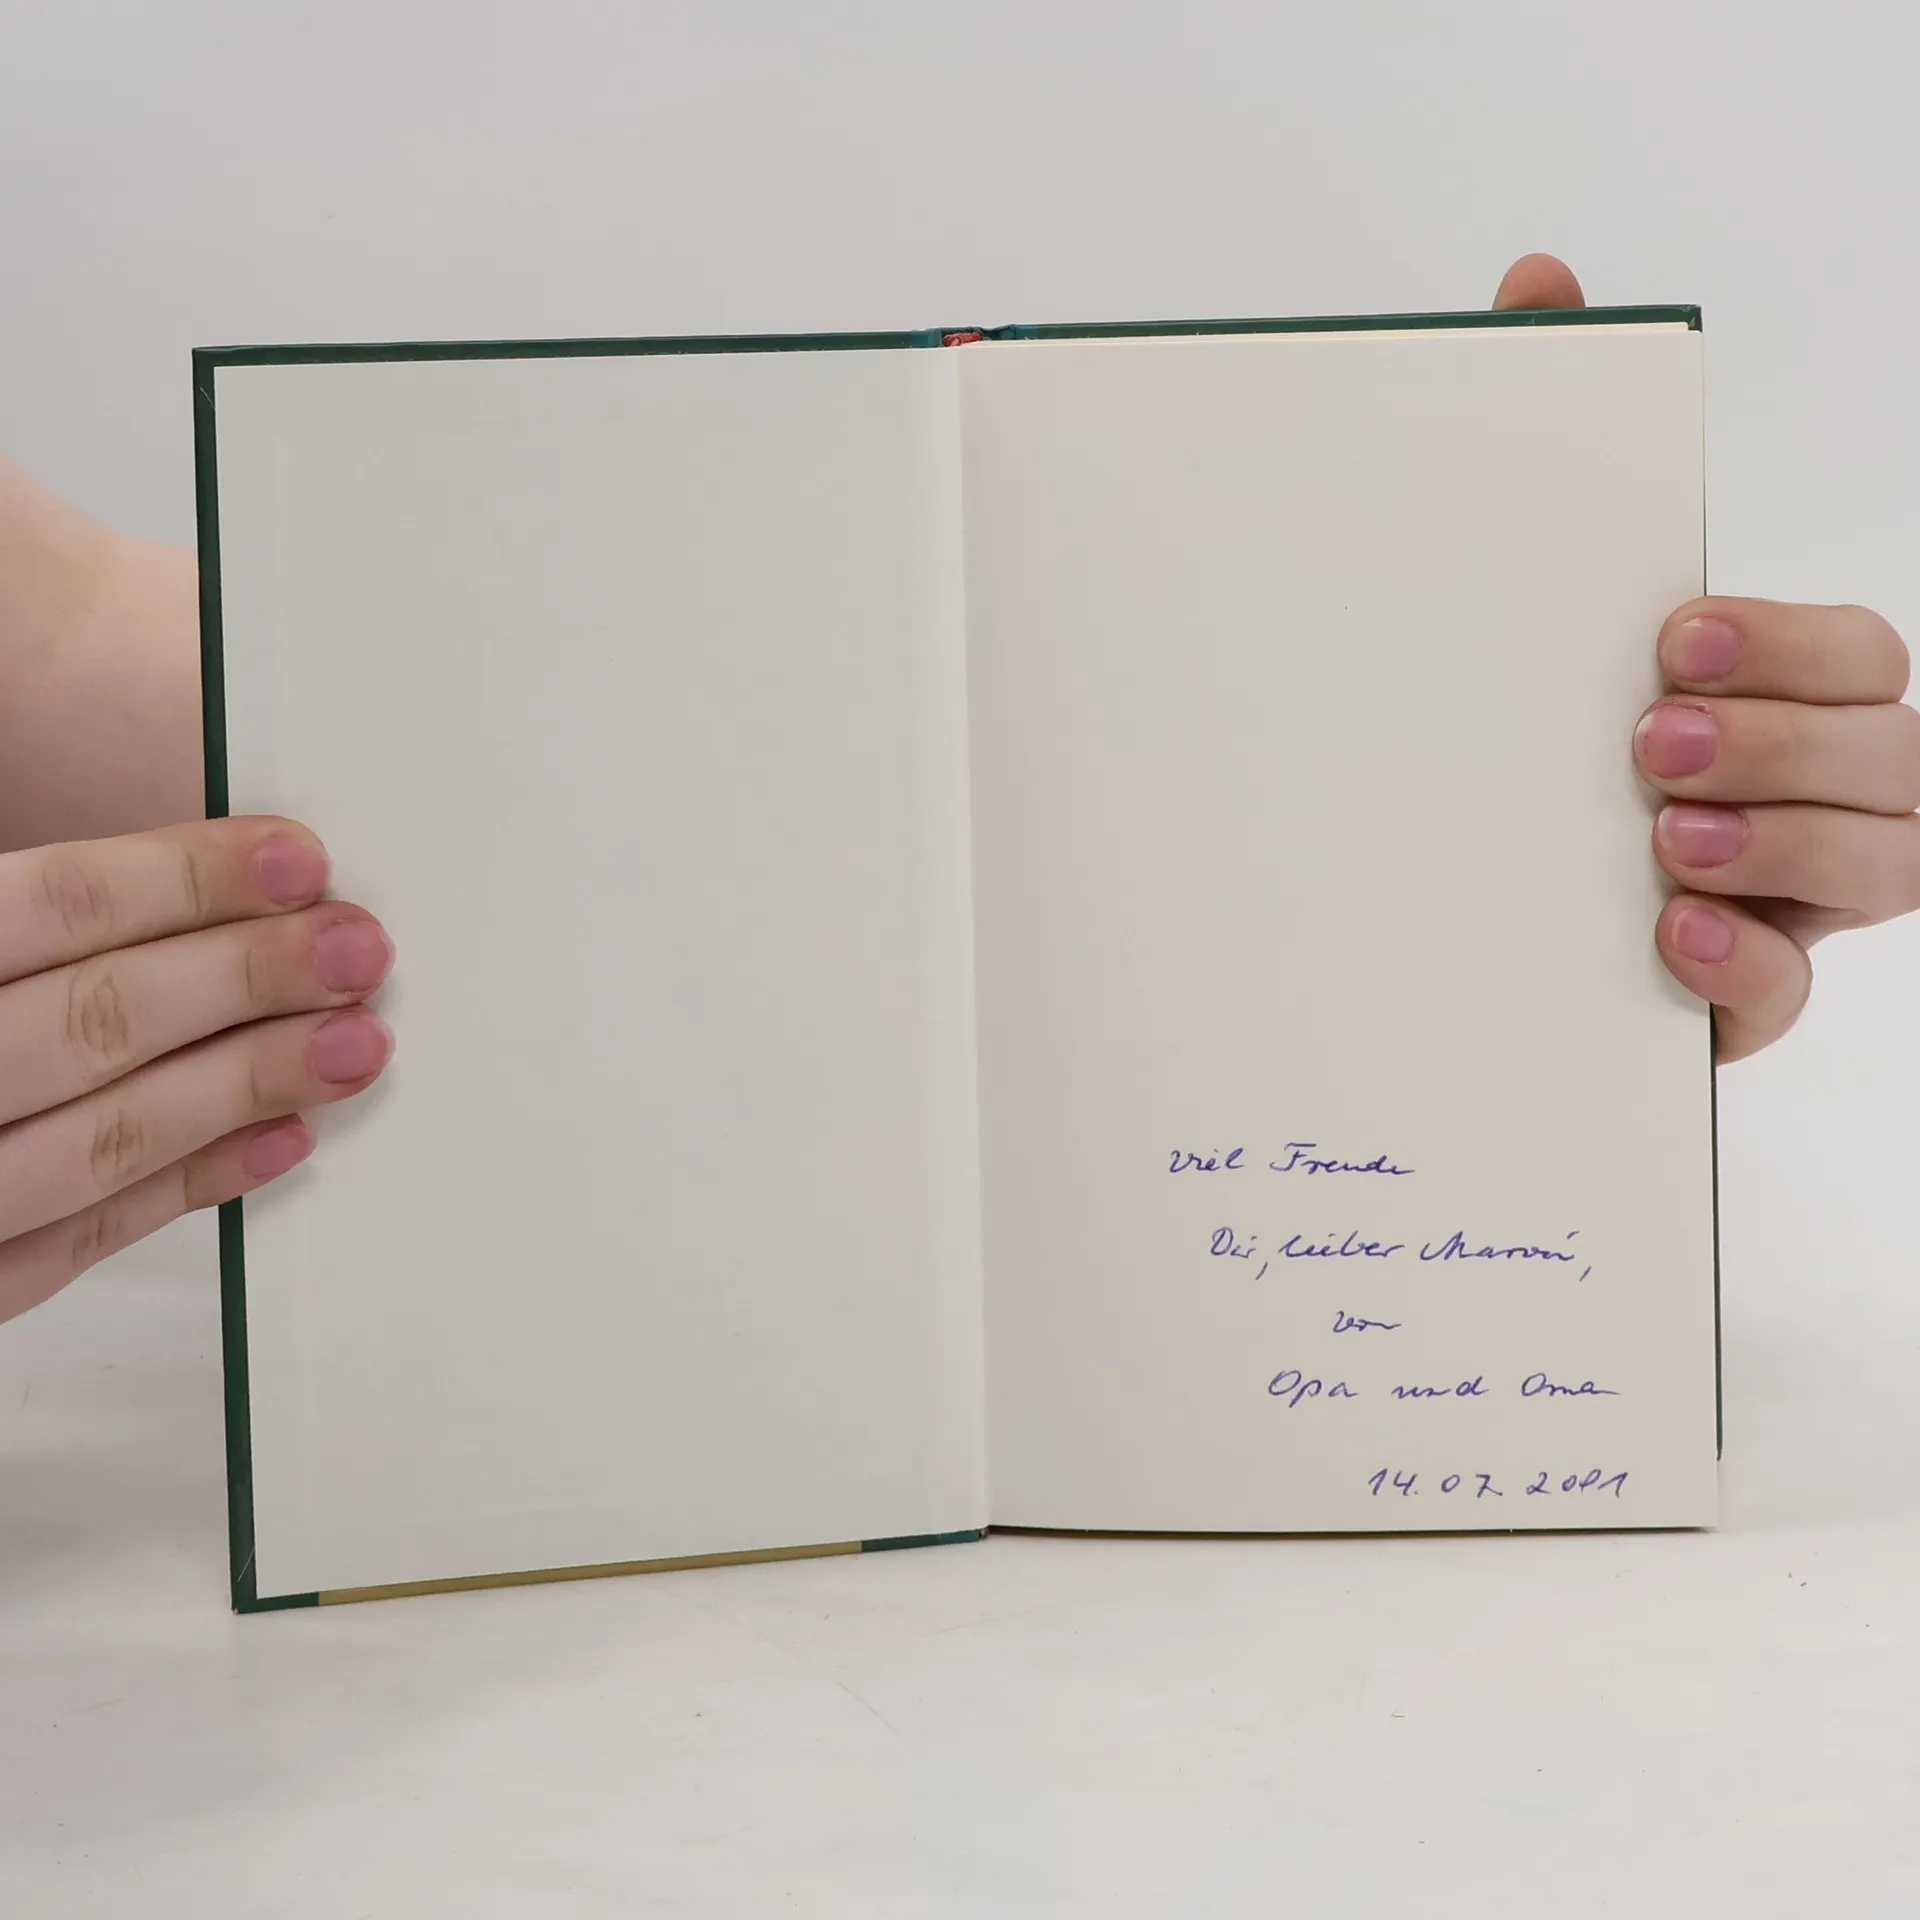 Viel Freude
Dir, lieber Marvin,
von
Opa und Oma
14.07.2001